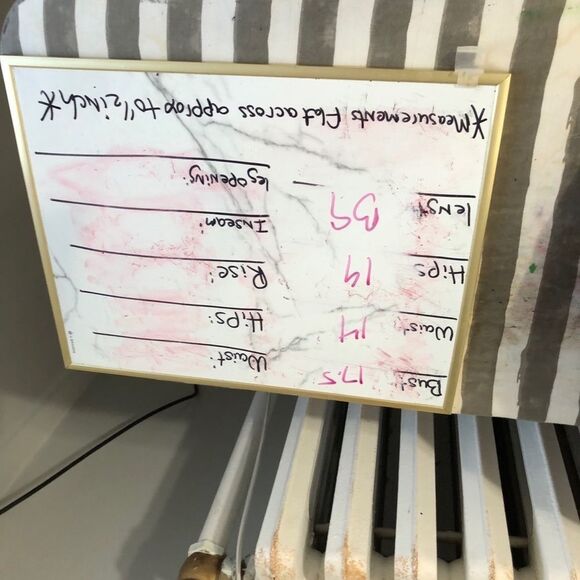 Bust: 17.5 Waist:
Waist: 14 Hips:
Hips 19 Rise:
39 Inseam:
leg opening:
*Measurements Flat across approp to 1/2 inch*